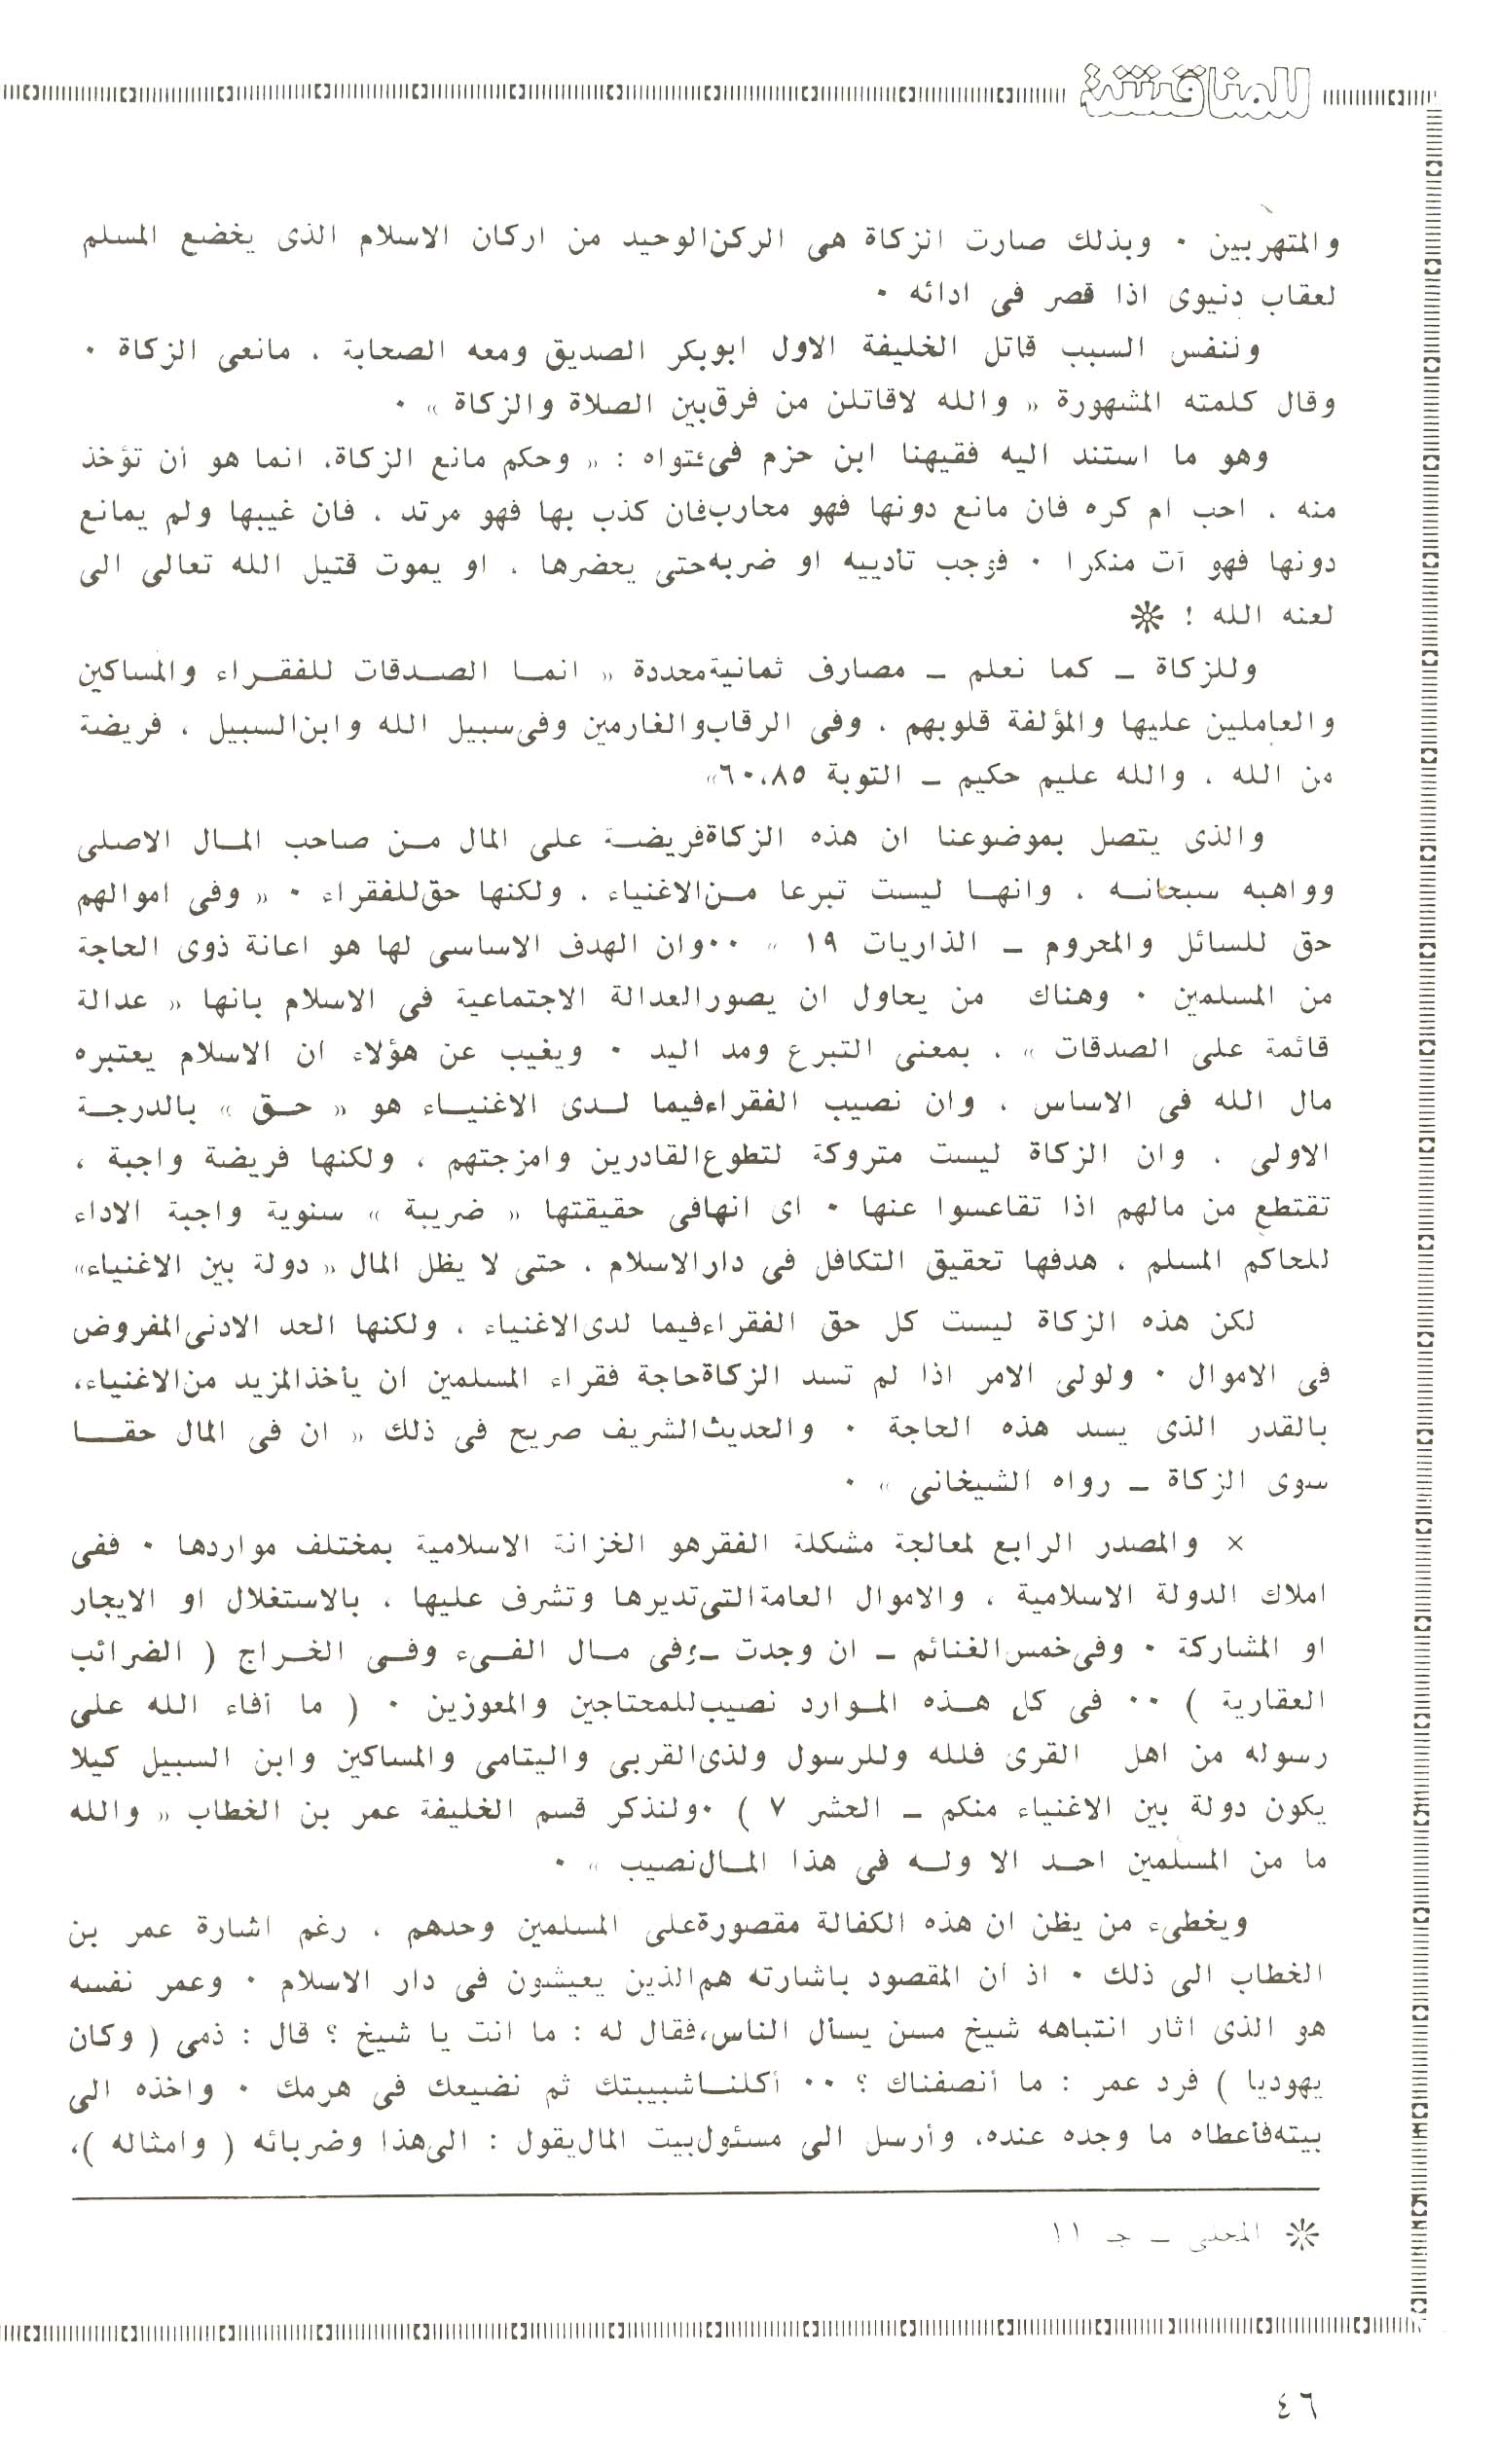 للمناقشة
والمتهربين ٠ وبذلك صارت الزكاة هى الركن الوحيد من اركان الاسلام الذى يخضع المسلم
لعقاب دنيوى اذا قصر فى ادائه ٠
ولنفس السبب قاتل الخليفة الاول ابوبكر الصديق ومعه الصحابة ، مانعى الزكاة ٠
وقال كلمته المشهورة « والله لاقاتلن من فرق بين الصلاة والزكاة » ٠
وهو ما استند اليه فقيهنا ابن حزم فى فتواه : « وحكم مانع الزكاة، انما هو أن تؤخذ
منه ، احب ام كره فان مانع دونها فهو محارب فان كذب بها فهو مرتد ، فان غيبها ولم يمانع
دونها فهو آت منكرا ٠ فوجب تأدييه او ضربه حتى يحضرها ، او يموت قتيل الله تعالى الى
لعنه الله ! ❊
وللزكاة ــ كما نعلم ــ مصارف ثمانية محددة « انمـا الصـدقات للفقـراء والمساكين
والعاملين عليها والمؤلفة قلوبهم ، وفى الرقاب والغارمين وفى سبيل الله وابن السبيل ، فريضة
من الله ، والله عليم حكيم ــ التوبة ٦٠،٨٥»
والذى يتصل بموضوعنا ان هذه الزكاة فريضـة على المال مـن صاحب المـال الاصلى
وواهبه سبحانـه ، وانهـا ليست تبرعا مـن الاغنياء ، ولكنها حق للفقراء ٠ « وفى اموالهم
حق للسائل والمحروم ــ الذاريات ١٩ » ٠٠ وان الهدف الاساسى لها هو اعانة ذوى الحاجة
من المسلمين ٠ وهناك من يحاول ان يصور العدالة الاجتماعية فى الاسلام بانها « عدالة
قائمة على الصدقات » ، بمعنى التبرع ومد اليد ٠ ويغيب عن هؤلاء ان الاسلام يعتبره
مال الله فى الاساس ، وان نصيب الفقراء فيما لـدى الاغنيـاء هو « حـق » بالدرجـة
الاولى ، وان الزكاة ليست متروكة لتطوع القادرين وامزجتهم ، ولكنها فريضة واجبة ،
تقتطع من مالهم اذا تقاعسوا عنها ٠ اى انها فى حقيقتها « ضريبة » سنوية واجبة الاداء
للحاكم المسلم ، هدفها تحقيق التكافل فى دار الاسلام ، حتى لا يظل المال « دولة بين الاغنياء»
لكن هذه الزكاة ليست كل حق الفقراء فيما لدى الاغنياء ، ولكنها الحد الادنى المفروض
فى الاموال ٠ ولولى الامر اذا لم تسد الزكاة حاجة فقراء المسلمين ان يأخذ المزيد من الاغنياء،
بالقدر الذى يسد هذه الحاجة ٠ والحديث الشريف صريح فى ذلك « ان فى المال حقـــا
سوى الزكاة ــ رواه الشيخانى » ٠
× والمصدر الرابع لمعالجة مشكلة الفقر هو الخزانة الاسلامية بمختلف مواردها ٠ ففى
املاك الدولة الاسلامية ، والاموال العامة التى تديرها وتشرف عليها ، بالاستغلال او الايجار
او المشاركة ٠ وفى خمس الغنائم ــ ان وجدت ــ وفى مـال الفـىء وفـى الخـراج ( الضرائب
العقارية ) ٠٠ فى كل هـذه المـوارد نصيب للمحتاجين والمعوزين ٠ ( ما أفاء الله على
رسوله من اهل القرى فلله وللرسول ولذى القربى واليتامى والمساكين وابن السبيل كيلا
يكون دولة بين الاغنياء منكم ــ الحشر ٧ ) ٠ ولنذكر قسم الخليفة عمر بن الخطاب « والله
ما من المسلمين احـد الا ولـه فى هذا المـال نصيب » ٠
ويخطىء من يظن ان هذه الكفالة مقصورة على المسلمين وحدهم ، رغم اشارة عمر بن
الخطاب الى ذلك ٠ اذ ان المقصود باشارته هم الذين يعيشون فى دار الاسلام ٠ وعمر نفسه
هو الذى اثار انتباهه شيخ مسن يسأل الناس، فقال له : ما انت يا شيخ ؟ قال : ذمى ( وكان
يهوديا ) فرد عمر : ما أنصفناك ؟ ٠٠ أكلنـا شبيبتك ثم نضيعك فى هرمك ٠ واخذه الى
بيته فأعطاه ما وجده عنده، وأرسل الى مسئول بيت المال يقول : الى هذا وضربائه ( وامثاله )،
❊ المحلى ــ جـ ١١
٤٦